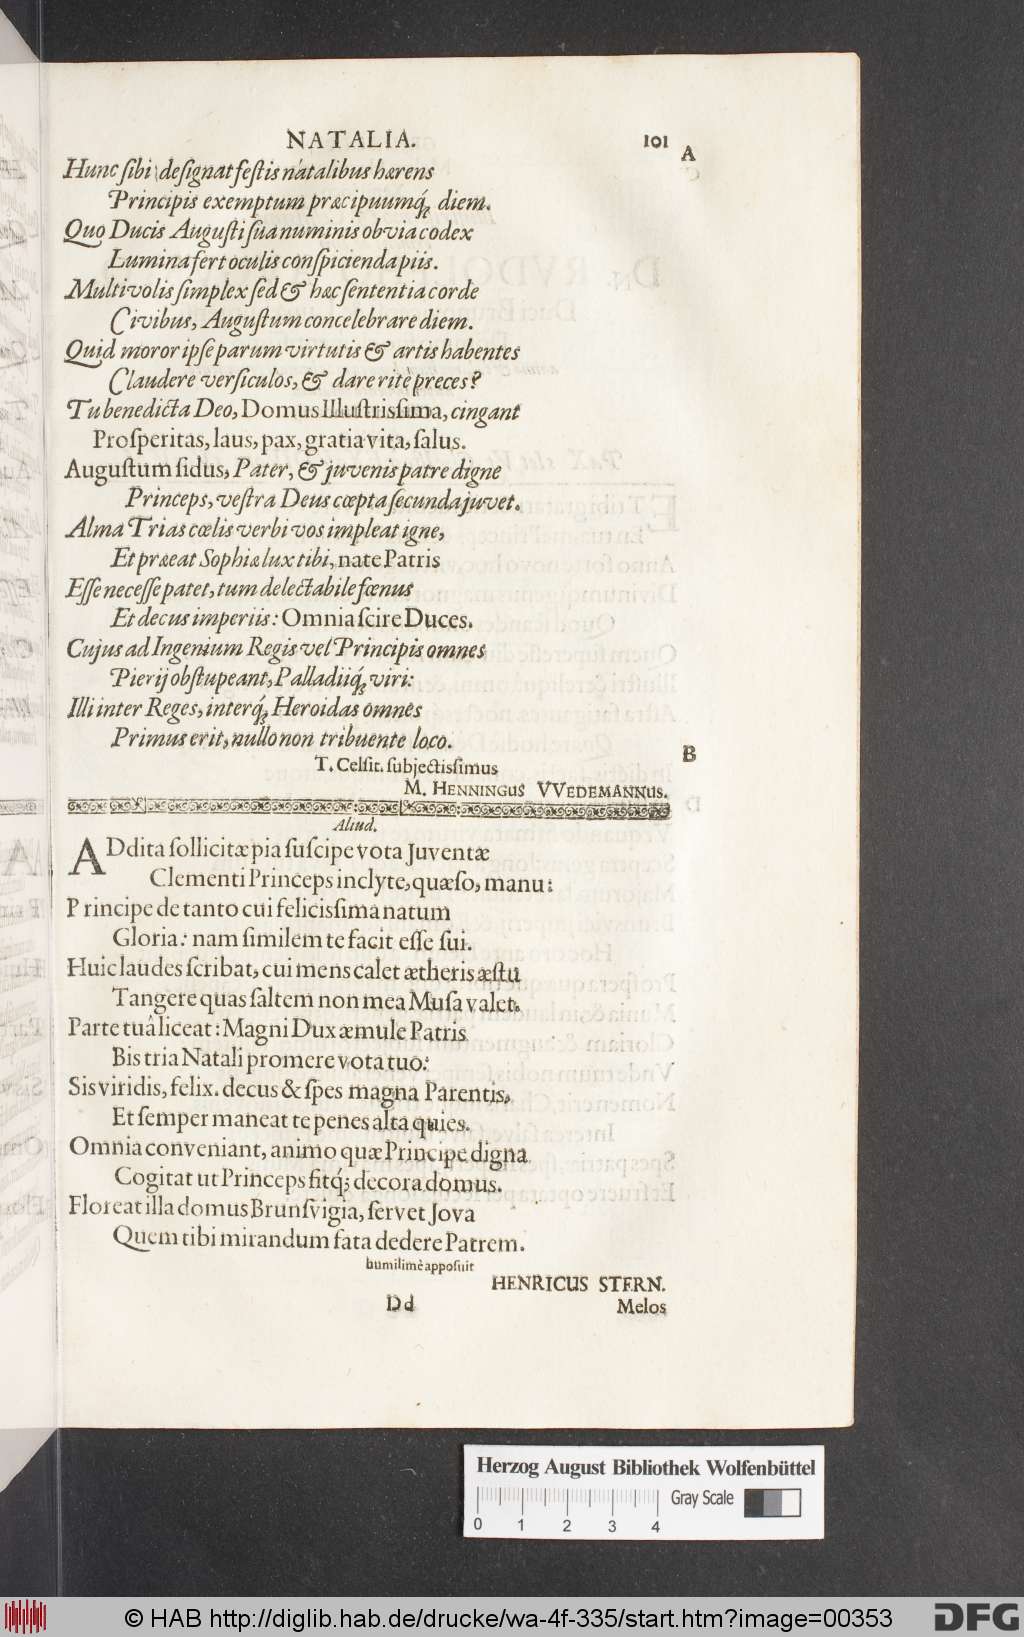 NATALIA. 101
A
Hunc ſibi deſignat feſtis natalibus hærens
Principis exemptum præcipuumq́; diem.
Quo Ducis Auguſti ſua numinis obvia codex
Lumina fert oculis conſpicienda piis.
Multivolis ſimplex ſed & hæc ſententia corde
Civibus, Auguſtum concelebrare diem.
Quid moror ipſe parum virtutis & artis habentes
Claudere verſiculos, & dare ritè preces?
Tu benedicta Deo, Domus Illuſtriſſima, cingant
Proſperitas, laus, pax, gratia vita, ſalus.
Auguſtum ſidus, Pater, & juvenis patre digne
Princeps, veſtra Deus cœpta ſecunda juvet.
Alma Trias cœlis verbi vos impleat igne,
Et præeat Sophiæ lux tibi, nate Patris
Eſſe neceſſe patet, tum delectabile fœnus
Et decus imperiis: Omnia ſcire Duces.
Cujus ad Ingenium Regis vel Principis omnes
Pierij obſtupeant, Palladiiq́; viri:
Illi inter Reges, interq́; Heroidas omnes
Primus erit, nullo non tribuente loco.
B
T. Celſit. ſubjectiſſimus
M. HENNINGUS VVEDEMANNUS.
Aliud.
ADdita ſollicitæ pia ſuſcipe vota Juventæ
Clementi Princeps inclyte, quæſo, manu:
Principe de tanto cui feliciſſima natum
Gloria: nam ſimilem te facit eſſe ſui.
Huic laudes ſcribat, cui mens calet ætheris æſtu
Tangere quas ſaltem non mea Muſa valet.
Parte tuâ liceat: Magni Dux æmule Patris
Bis tria Natali promere vota tuo:
Sis viridis, felix. decus & ſpes magna Parentis,
Et ſemper maneat te penes alta quies.
Omnia conveniant, animo quæ Principe digna
Cogitat ut Princeps fitq́; decora domus.
Floreat illa domus Brunſvigia, ſervet Jova
Quem tibi mirandum fata dedere Patrem.
humilimè appoſuit
HENRICUS STERN.
Dd Melos
Herzog August Bibliothek Wolfenbüttel
Gray Scale
0 1 2 3 4
© HAB http://diglib.hab.de/drucke/wa-4f-335/start.htm?image=00353
DFG